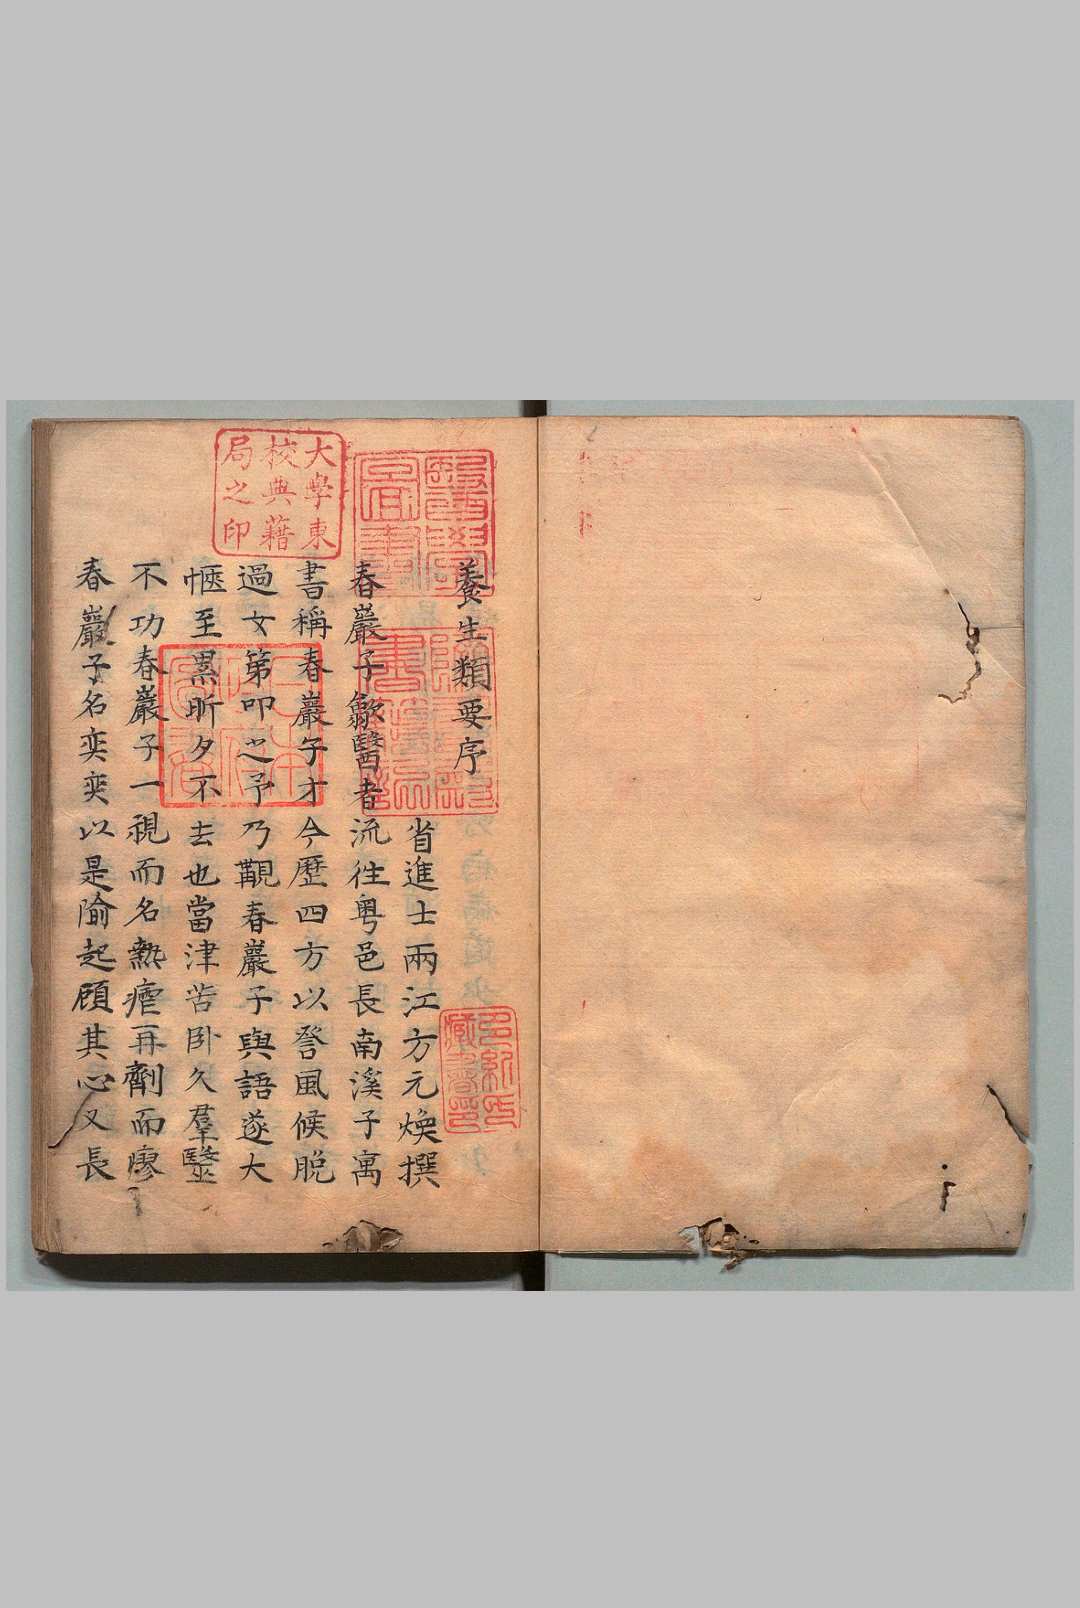 養生類要序
省進士兩江方元煥撰
春巖子歙醫者流徃粤邑長南溪子寓
書稱春巖子才今歷四方以詧風候脫
過女第叩之予乃覯春巖子與語遂大
愜至累昕夕不去也當津苦卧久羣毉
不功春巖子一視而名熱瘧再劑而瘳
春巖子名奕奕以是隃起頋其心又長
大學東
校典藉
局之印
醫學
圖書